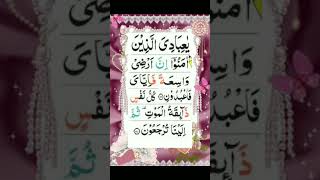 يٰعِبَادِىَ الَّذِيْنَ
اٰمَنُوْۤا اِنَّ اَرْضِىْ
وَاسِعَةٌ فَاِيَّاىَ
فَاعْبُدُوْنِ ۝ كُلُّ نَفْسٍ
ذَآئِقَةُ الْمَوْتِ ثُمَّ
اِلَيْنَا تُرْجَعُوْنَ ۝
ثُمَّ